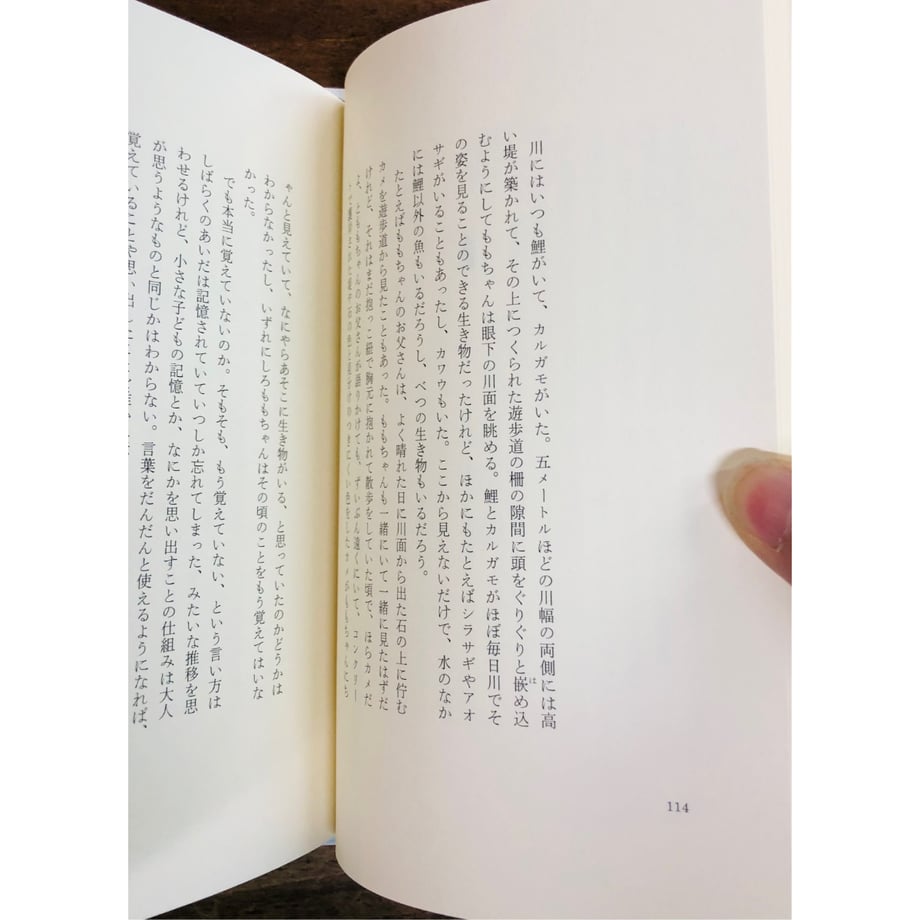 川にはいつも鯉がいて、カルガモがいた。五メートルほどの川幅の両側には高
い堤が築かれて、その上につくられた遊歩道の柵の隙間に頭をぐりぐりと嵌め込
は
むようにしてももちゃんは眼下の川面を眺める。鯉とカルガモがほぼ毎日川でそ
の姿を見ることのできる生き物だったけれど、ほかにもたとえばシラサギやアオ
サギがいることもあったし、カワウもいた。ここから見えないだけで、水のなか
には鯉以外の魚もいるだろうし、べつの生き物もいるだろう。
たとえばももちゃんのお父さんは、よく晴れた日に川面から出た石の上に佇む
カメを遊歩道から見たこともあった。ももちゃんも一緒にいて一緒に見たはずだ
けれど、それはまだ抱っこ紐で胸元に抱かれて散歩をしていた頃で、ほらカメだ
よ、とももちゃんのお父さんが語りかけても、ずいぶん遠くにいて、コンクリー
ゃんと見えていて、なにやらあそこに生き物がいる、と思っていたのかどうかは
わからなかったし、いずれにしろももちゃんはその頃のことをもう覚えてはいな
かった。
でも本当に覚えていないのか。そもそも、もう覚えていない、という言い方は
しばらくのあいだは記憶されていていつしか忘れてしまった、みたいな推移を思
わせるけれど、小さな子どもの記憶とか、なにかを思い出すことの仕組みは大人
が思うようなものと同じかはわからない。言葉をだんだんと使えるようになれば、
覚えていることや思い出し
114